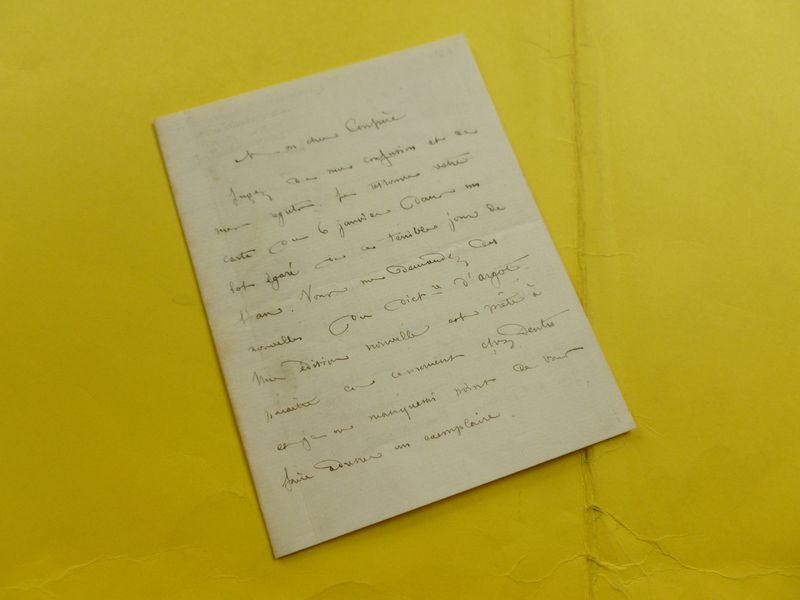 Mon cher Compère
Jugez de ma confusion et de
mes . Je retrouve votre
carte du 6 janvier dans un
lot égaré de ces terribles jours de
l'an. Vous me demandez des
nouvelles du Dictre d'argot.
Une édition nouvelle est prête à
paraître en ce moment chez Dentu
et je ne manquerai point de vous
faire adresser un exemplaire.